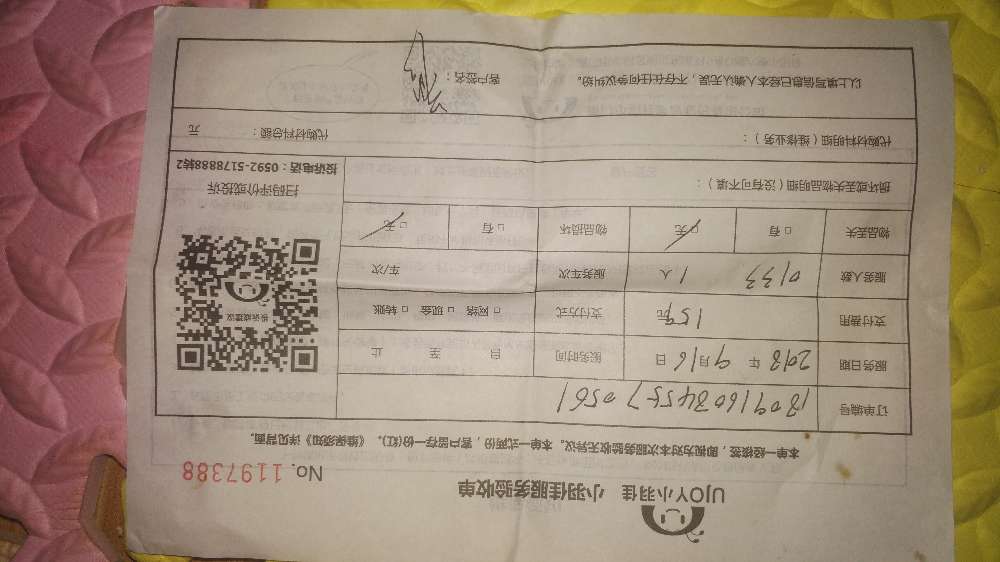 UJOY小羽佳 小羽佳服务验收单
No. 1197388
本单一经接签，即视为对本次服务验收无异议。本单一式两份，客户留存一份(红)。《维保须知》详见背面.
订单编号 180916034557 0561
服务日期 2018 年 9 月 16 日 服务时间 自 至 止
支付费用 159 元 支付方式 □ 网络 □ 现金 □ 转账
服务人数 0133 1 人 服务车次 车/次
物品丢失 □ 有 □ 无 物品损坏 □ 有 □ 无
投诉或建议
扫码评价或投诉
投诉电话：0592-5178888转2
损坏或丢失物品明细（没有可不填）：
代购材料明细（维修业务）： 代购材料总额： 元
以上填写信息已经本人确认无误，不存在任何争议纠纷。 客户签名：